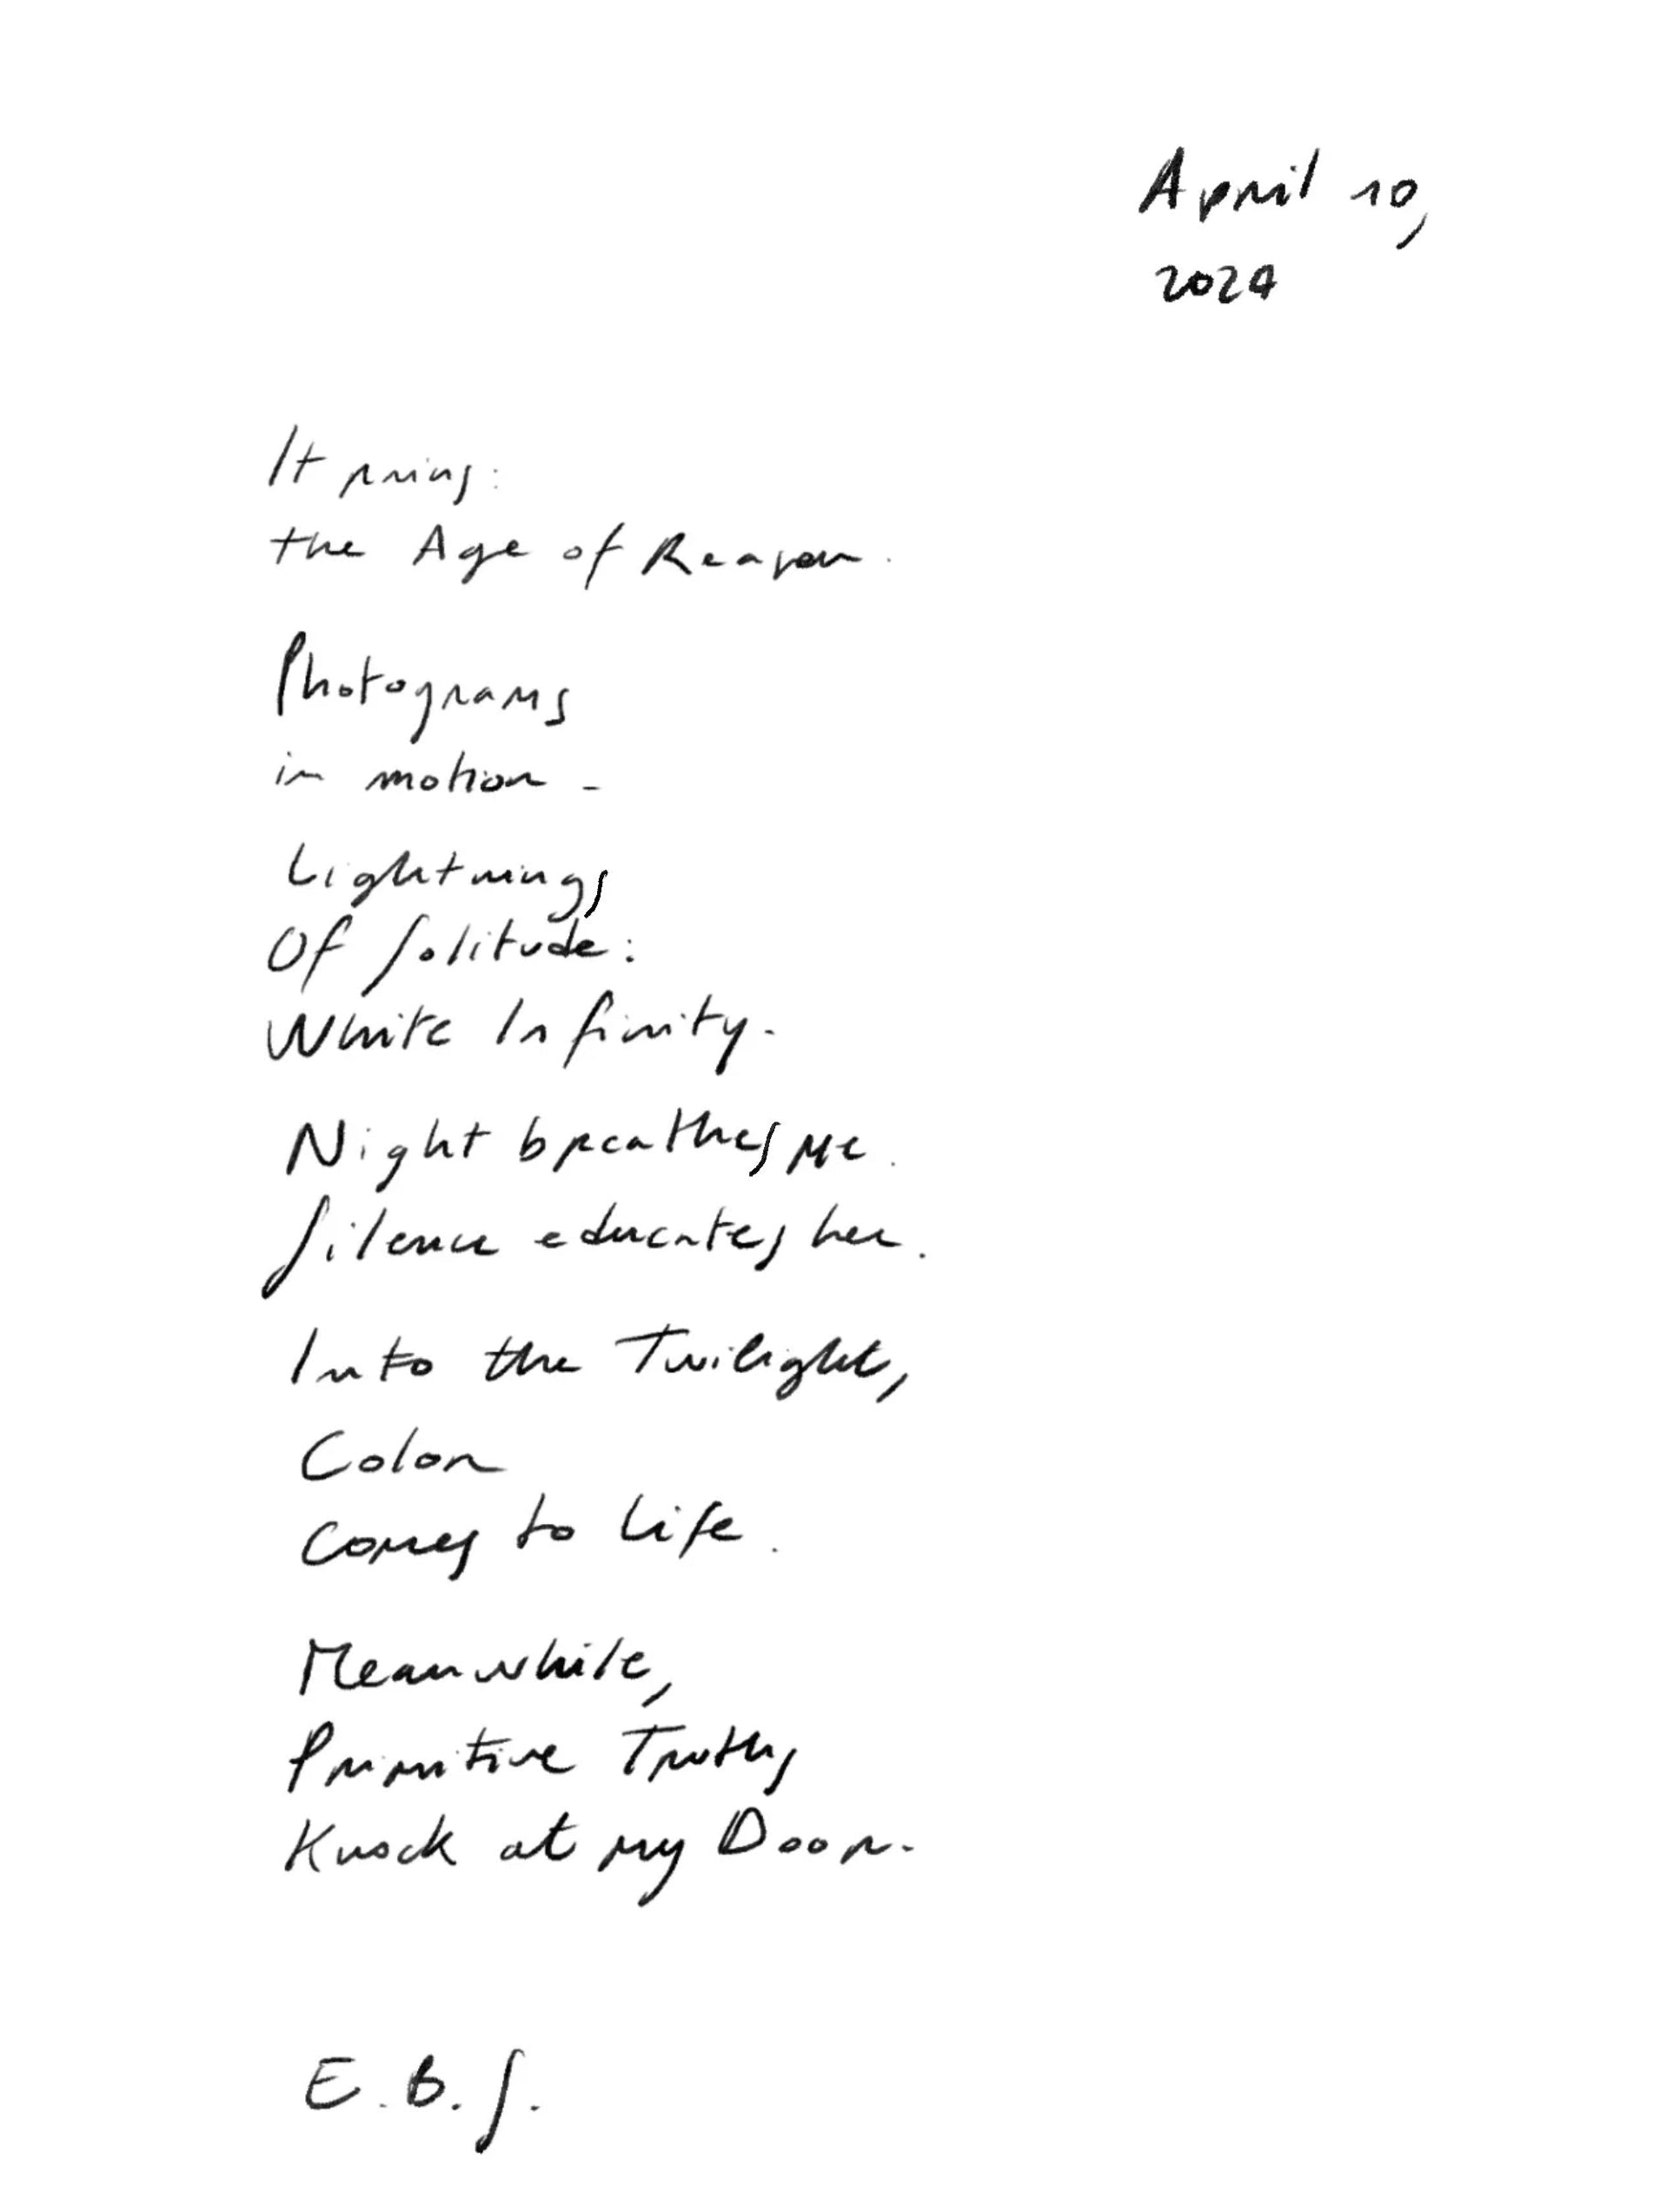 April 10,
2024
It rains:
the Age of Reason.
Photograms
in motion -
Lightnings
Of Solitude:
White Infinity.
Night breathes me.
Silence educates her.
Into the Twilight,
Color
comes to life.
Meanwhile,
Primitive Truths
Knock at my Door.
E. B. S.